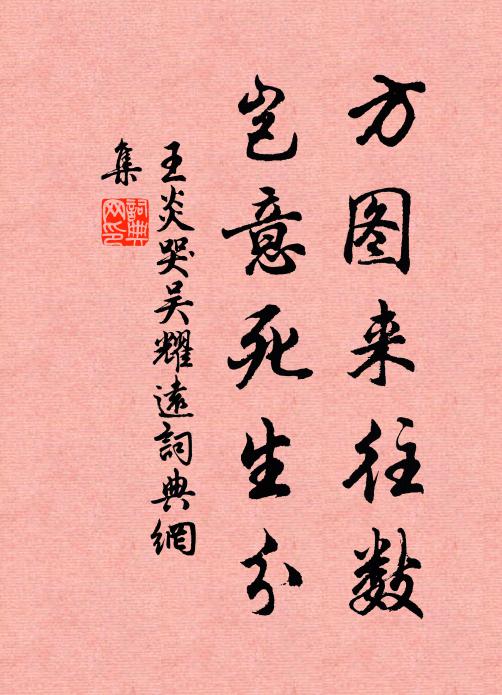 方图来往数
岂意死生分
王炎哭吴耀远词典网
集
词典网印